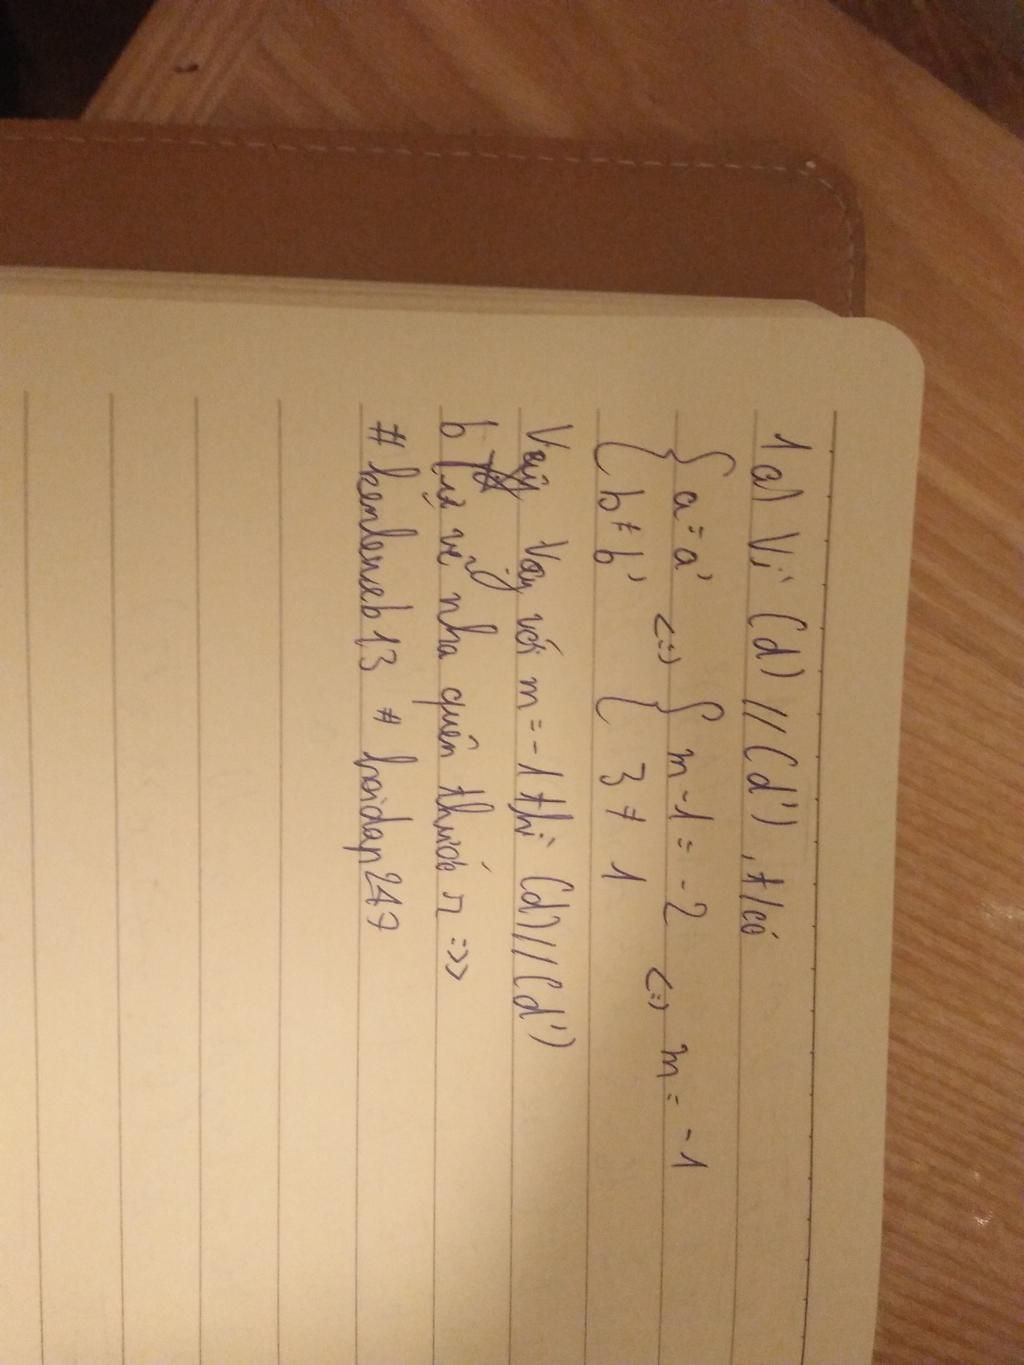 1 a) Vì (d) // (d'), t/có
{ a = a' <=> { m - 1 = -2 <=> m = -1
{ b ≠ b' { 3 ≠ 1
Vậy với m = -1 thì (d) // (d')
b tự vẽ nha quên thước r =>>
# kenleneb13 # hoidap247